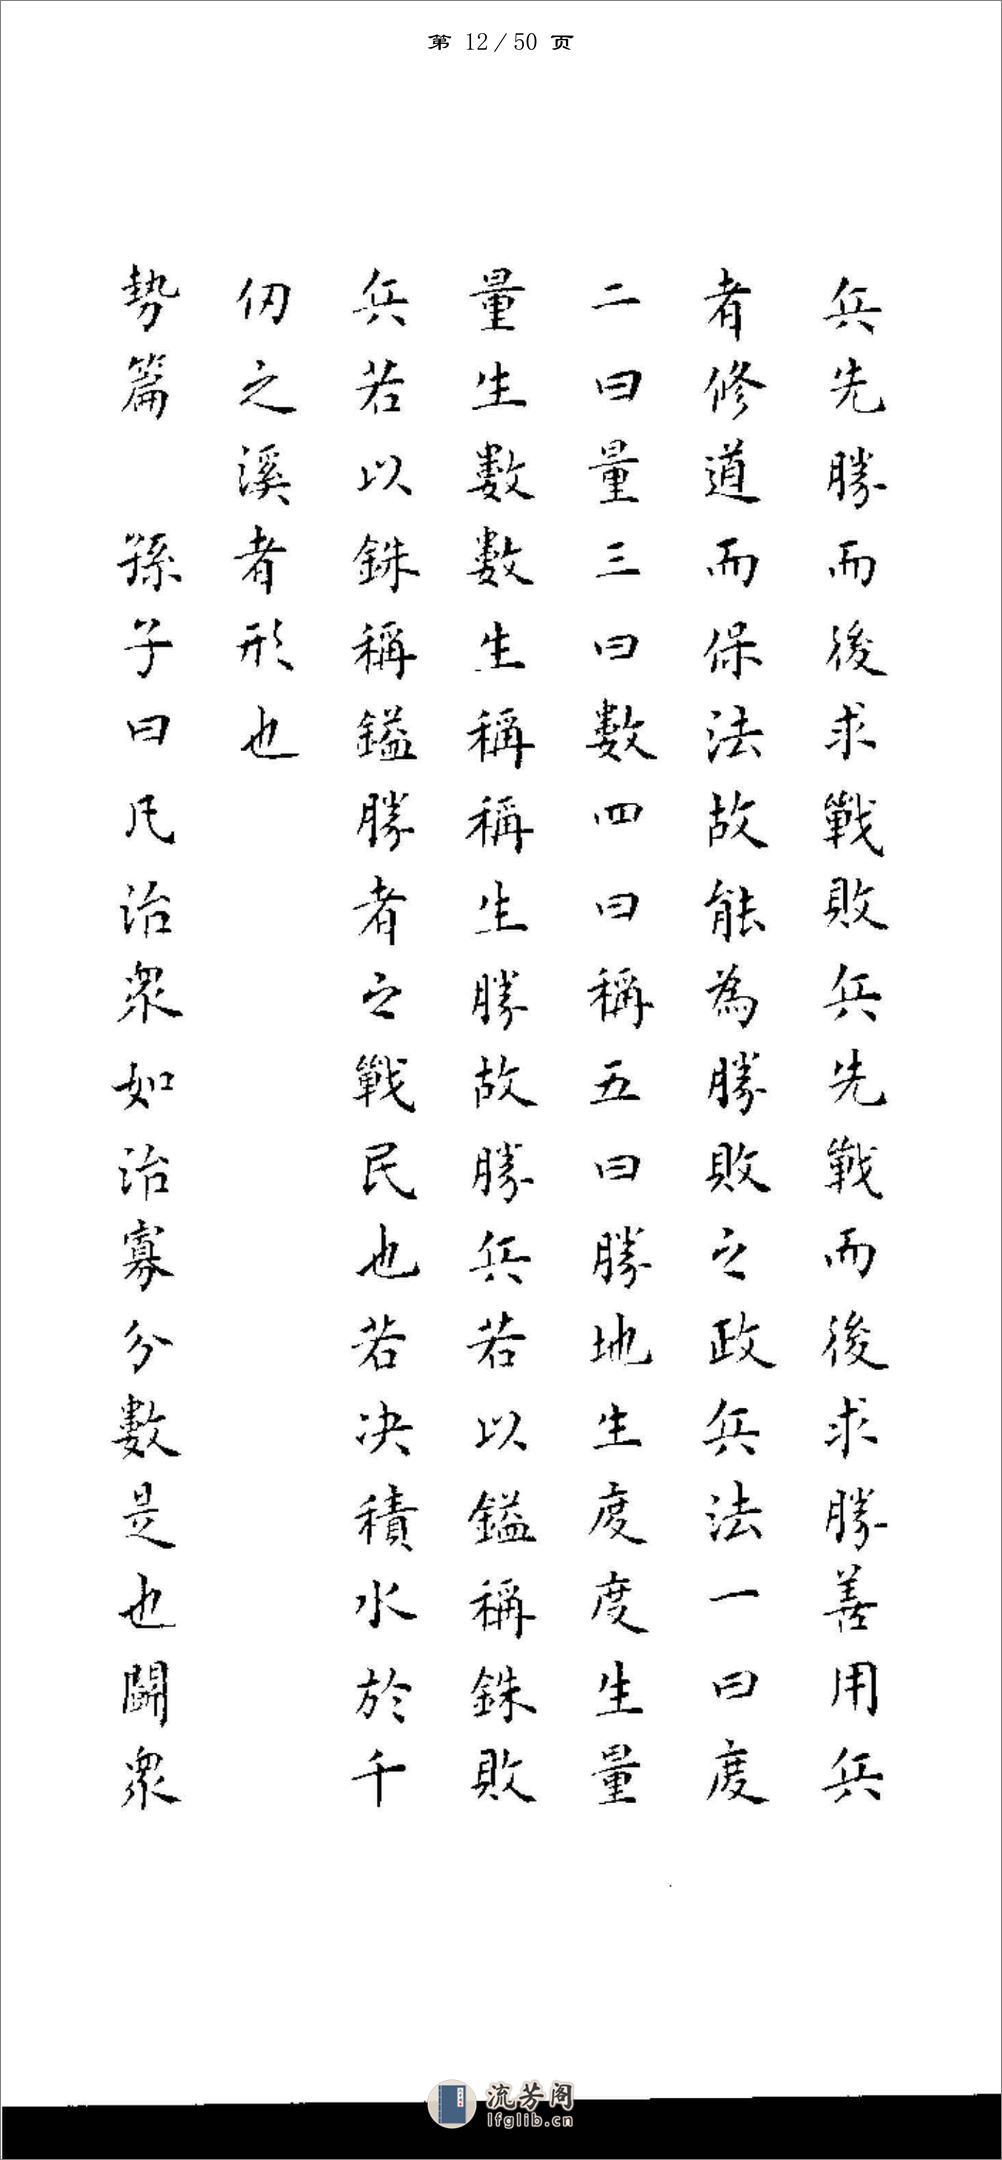 第 12/50 页
兵先勝而後求戰敗兵先戰而後求勝善用兵
者修道而保法故能為勝敗之政兵法一曰度
二曰量三曰數四曰稱五曰勝地生度度生量
量生數數生稱稱生勝故勝兵若以鎰稱銖敗
兵若以銖稱鎰勝者之戰民也若决積水於千
仞之溪者形也
勢篇 孫子曰凡治衆如治寡分數是也鬬衆
流芳阁
lfglib.cn